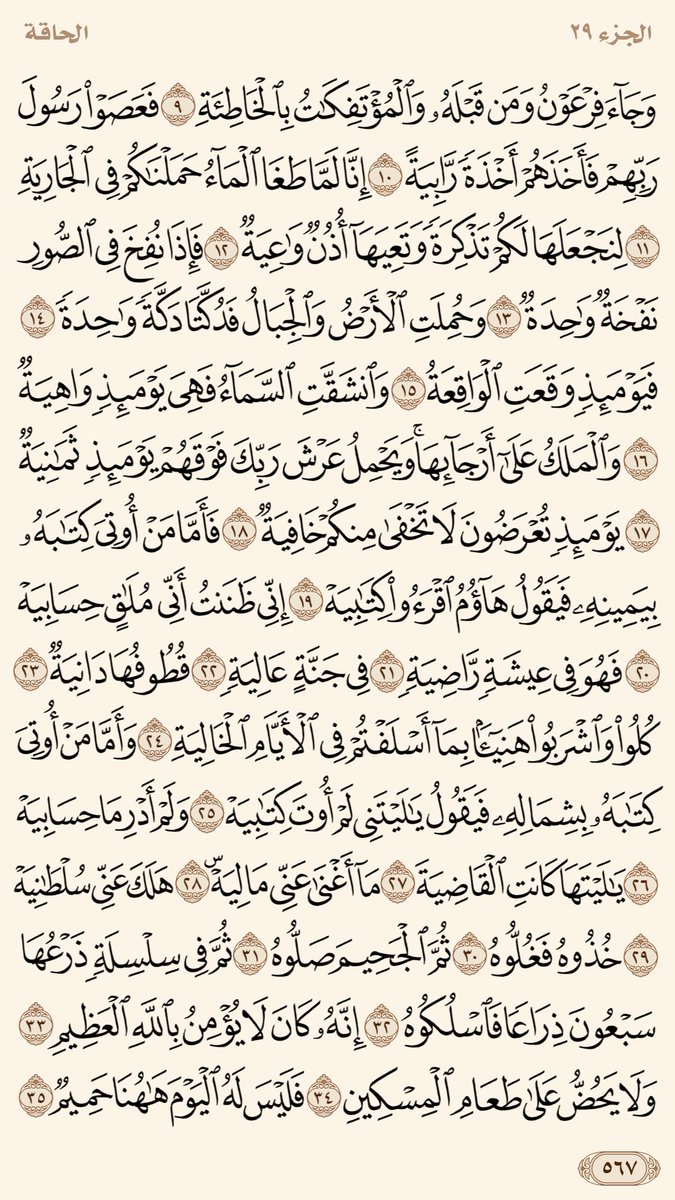 الجزء ٢٩
الحاقة
وَجَآءَ فِرۡعَوۡنُ وَمَن قَبۡلَهُۥ وَٱلۡمُؤۡتَفِكَٰتُ بِٱلۡخَاطِئَةِ ٩ فَعَصَوۡاْ رَسُولَ
رَبِّهِمۡ فَأَخَذَهُمۡ أَخۡذَةٗ رَّابِيَةً ١٠ إِنَّا لَمَّا طَغَا ٱلۡمَآءُ حَمَلۡنَٰكُمۡ فِي ٱلۡجَارِيَةِ
١١ لِنَجۡعَلَهَا لَكُمۡ تَذۡكِرَةٗ وَتَعِيَهَآ أُذُنٞ وَٰعِيَةٞ ١٢ فَإِذَا نُفِخَ فِي ٱلصُّورِ
نَفۡخَةٞ وَٰحِدَةٞ ١٣ وَحُمِلَتِ ٱلۡأَرۡضُ وَٱلۡجِبَالُ فَدُكَّتَا دَكَّةٗ وَٰحِدَةٗ ١٤
فَيَوۡمَئِذٖ وَقَعَتِ ٱلۡوَاقِعَةُ ١٥ وَٱنشَقَّتِ ٱلسَّمَآءُ فَهِيَ يَوۡمَئِذٖ وَاهِيَةٞ
١٦ وَٱلۡمَلَكُ عَلَىٰٓ أَرۡجَآئِهَاۚ وَيَحۡمِلُ عَرۡشَ رَبِّكَ فَوۡقَهُمۡ يَوۡمَئِذٖ ثَمَٰنِيَةٞ
١٧ يَوۡمَئِذٖ تُعۡرَضُونَ لَا تَخۡفَىٰ مِنكُمۡ خَافِيَةٞ ١٨ فَأَمَّا مَنۡ أُوتِيَ كِتَٰبَهُۥ
بِيَمِينِهِۦ فَيَقُولُ هَآؤُمُ ٱقۡرَءُواْ كِتَٰبِيَهۡ ١٩ إِنِّي ظَنَنتُ أَنِّي مُلَٰقٍ حِسَابِيَهۡ
٢٠ فَهُوَ فِي عِيشَةٖ رَّاضِيَةٖ ٢١ فِي جَنَّةٍ عَالِيَةٖ ٢٢ قُطُوفُهَا دَانِيَةٞ ٢٣
كُلُواْ وَٱشۡرَبُواْ هَنِيٓـَٔۢا بِمَآ أَسۡلَفۡتُمۡ فِي ٱلۡأَيَّامِ ٱلۡخَالِيَةِ ٢٤ وَأَمَّا مَنۡ أُوتِيَ
كِتَٰبَهُۥ بِشِمَالِهِۦ فَيَقُولُ يَٰلَيۡتَنِي لَمۡ أُوتَ كِتَٰبِيَهۡ ٢٥ وَلَمۡ أَدۡرِ مَا حِسَابِيَهۡ
٢٦ يَٰلَيۡتَهَا كَانَتِ ٱلۡقَاضِيَةَ ٢٧ مَآ أَغۡنَىٰ عَنِّي مَالِيَهۡۜ ٢٨ هَلَكَ عَنِّي سُلۡطَٰنِيَهۡ
٢٩ خُذُوهُ فَغُلُّوهُ ٣٠ ثُمَّ ٱلۡجَحِيمَ صَلُّوهُ ٣١ ثُمَّ فِي سِلۡسِلَةٖ ذَرۡعُهَا
سَبۡعُونَ ذِرَاعٗا فَٱسۡلُكُوهُ ٣٢ إِنَّهُۥ كَانَ لَا يُؤۡمِنُ بِٱللَّهِ ٱلۡعَظِيمِ ٣٣
وَلَا يَحُضُّ عَلَىٰ طَعَامِ ٱلۡمِسۡكِينِ ٣٤ فَلَيۡسَ لَهُ ٱلۡيَوۡمَ هَٰهُنَا حَمِيمٞ ٣٥
٥٦٧